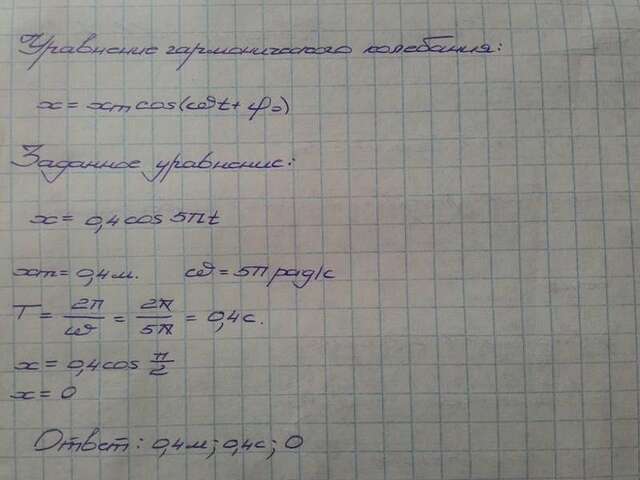 Уравнение гармонического колебания:
x = xm cos(ωt + φ0)
Заданное уравнение:
x = 0,4 cos 5πt
xm = 0,4 м. ω = 5π рад/с
T = 2π/ω = 2π/5π = 0,4 с.
x = 0,4 cos π/2
x = 0
Ответ: 0,4 м; 0,4 с; 0